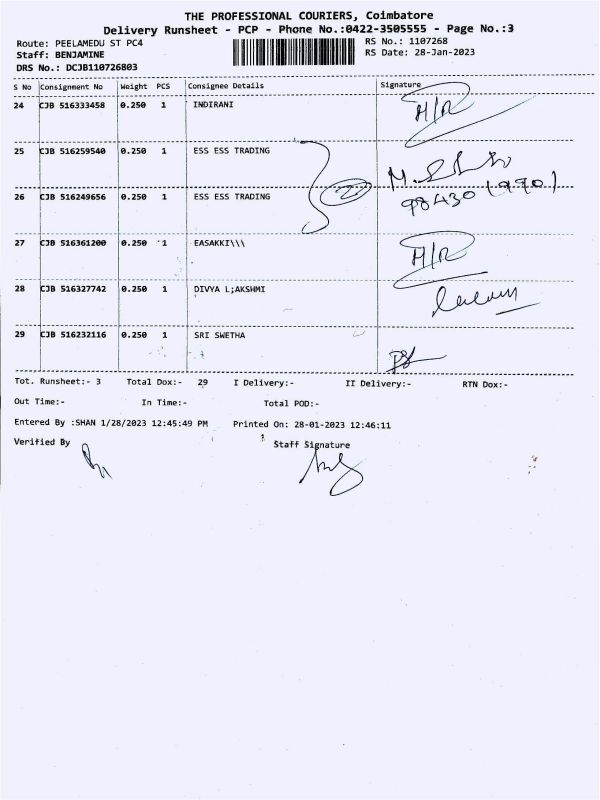 THE PROFESSIONAL COURIERS, Coimbatore
Delivery Runsheet - PCP - Phone No.:0422-3505555 - Page No.:3
Route: PEELAMEDU ST PC4 RS No.: 1107268
Staff: BENJAMINE RS Date: 28-Jan-2023
DRS No.: DCJB110726803
S No Consignment No Weight PCS Consignee Details Signature
24 CJB 516333458 0.250 1 INDIRANI H/R
25 CJB 516259540 0.250 1 ESS ESS TRADING
26 CJB 516249656 0.250 1 ESS ESS TRADING
27 CJB 516361200 0.250 1 EASAKKI\\\ H/R
28 CJB 516327742 0.250 1 DIVYA L;AKSHMI
29 CJB 516232116 0.250 1 SRI SWETHA
Tot. Runsheet:- 3 Total Dox:- 29 I Delivery:- II Delivery:- RTN Dox:-
Out Time:- In Time:- Total POD:-
Entered By :SHAN 1/28/2023 12:45:49 PM Printed On: 28-01-2023 12:46:11
Verified By Staff Signature